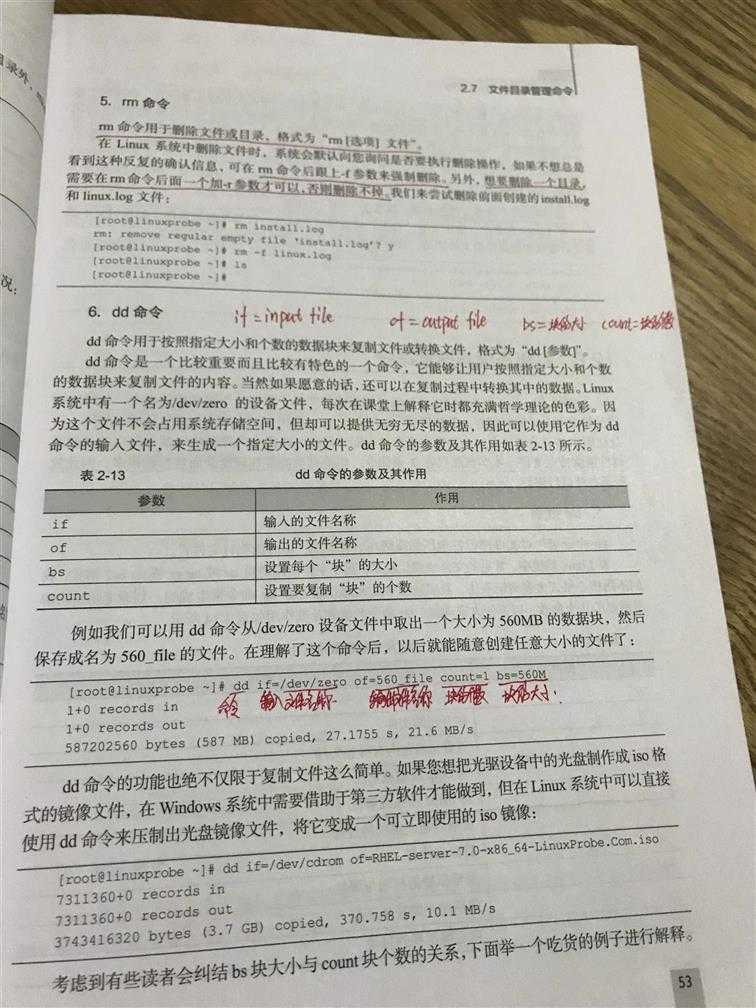 2.7 文件目录管理命令
5. rm 命令
rm 命令用于删除文件或目录，格式为“rm [选项] 文件”。
在 Linux 系统中删除文件时，系统会默认向您询问是否要执行删除操作，如果不想总是
看到这种反复的确认信息，可在 rm 命令后跟上-f 参数来强制删除。另外，想要删除一个目录，
需要在 rm 命令后面一个加-r 参数才可以，否则删除不掉。我们来尝试删除前面创建的 install.log
和 linux.log 文件：
[root@linuxprobe ~]# rm install.log
rm: remove regular empty file 'install.log'? y
[root@linuxprobe ~]# rm -f linux.log
[root@linuxprobe ~]# ls
[root@linuxprobe ~]#
况：
6. dd 命令 if=input file of=output file bs=块的大小 count=块的个数
dd 命令用于按照指定大小和个数的数据块来复制文件或转换文件，格式为“dd [参数]”。
dd 命令是一个比较重要而且比较有特色的一个命令，它能够让用户按照指定大小和个数
的数据块来复制文件的内容。当然如果愿意的话，还可以在复制过程中转换其中的数据。Linux
系统中有一个名为/dev/zero 的设备文件，每次在课堂上解释它时都充满哲学理论的色彩。因
为这个文件不会占用系统存储空间，但却可以提供无穷无尽的数据，因此可以使用它作为 dd
命令的输入文件，来生成一个指定大小的文件。dd 命令的参数及其作用如表 2-13 所示。
表 2-13 dd 命令的参数及其作用
参数 作用
if 输入的文件名称
of 输出的文件名称
bs 设置每个“块”的大小
count 设置要复制“块”的个数
例如我们可以用 dd 命令从/dev/zero 设备文件中取出一个大小为 560MB 的数据块，然后
保存成名为 560_file 的文件。在理解了这个命令后，以后就能随意创建任意大小的文件了：
[root@linuxprobe ~]# dd if=/dev/zero of=560_file count=1 bs=560M
1+0 records in
命令 输入文件名称 输出文件名称 块的个数 块的大小.
1+0 records out
587202560 bytes (587 MB) copied, 27.1755 s, 21.6 MB/s
dd 命令的功能也绝不仅限于复制文件这么简单。如果您想把光驱设备中的光盘制作成 iso 格
式的镜像文件，在 Windows 系统中需要借助于第三方软件才能做到，但在 Linux 系统中可以直接
使用 dd 命令来压制出光盘镜像文件，将它变成一个可立即使用的 iso 镜像：
[root@linuxprobe ~]# dd if=/dev/cdrom of=RHEL-server-7.0-x86_64-LinuxProbe.Com.iso
7311360+0 records in
7311360+0 records out
3743416320 bytes (3.7 GB) copied, 370.758 s, 10.1 MB/s
考虑到有些读者会纠结 bs 块大小与 count 块个数的关系，下面举一个吃货的例子进行解释。
53